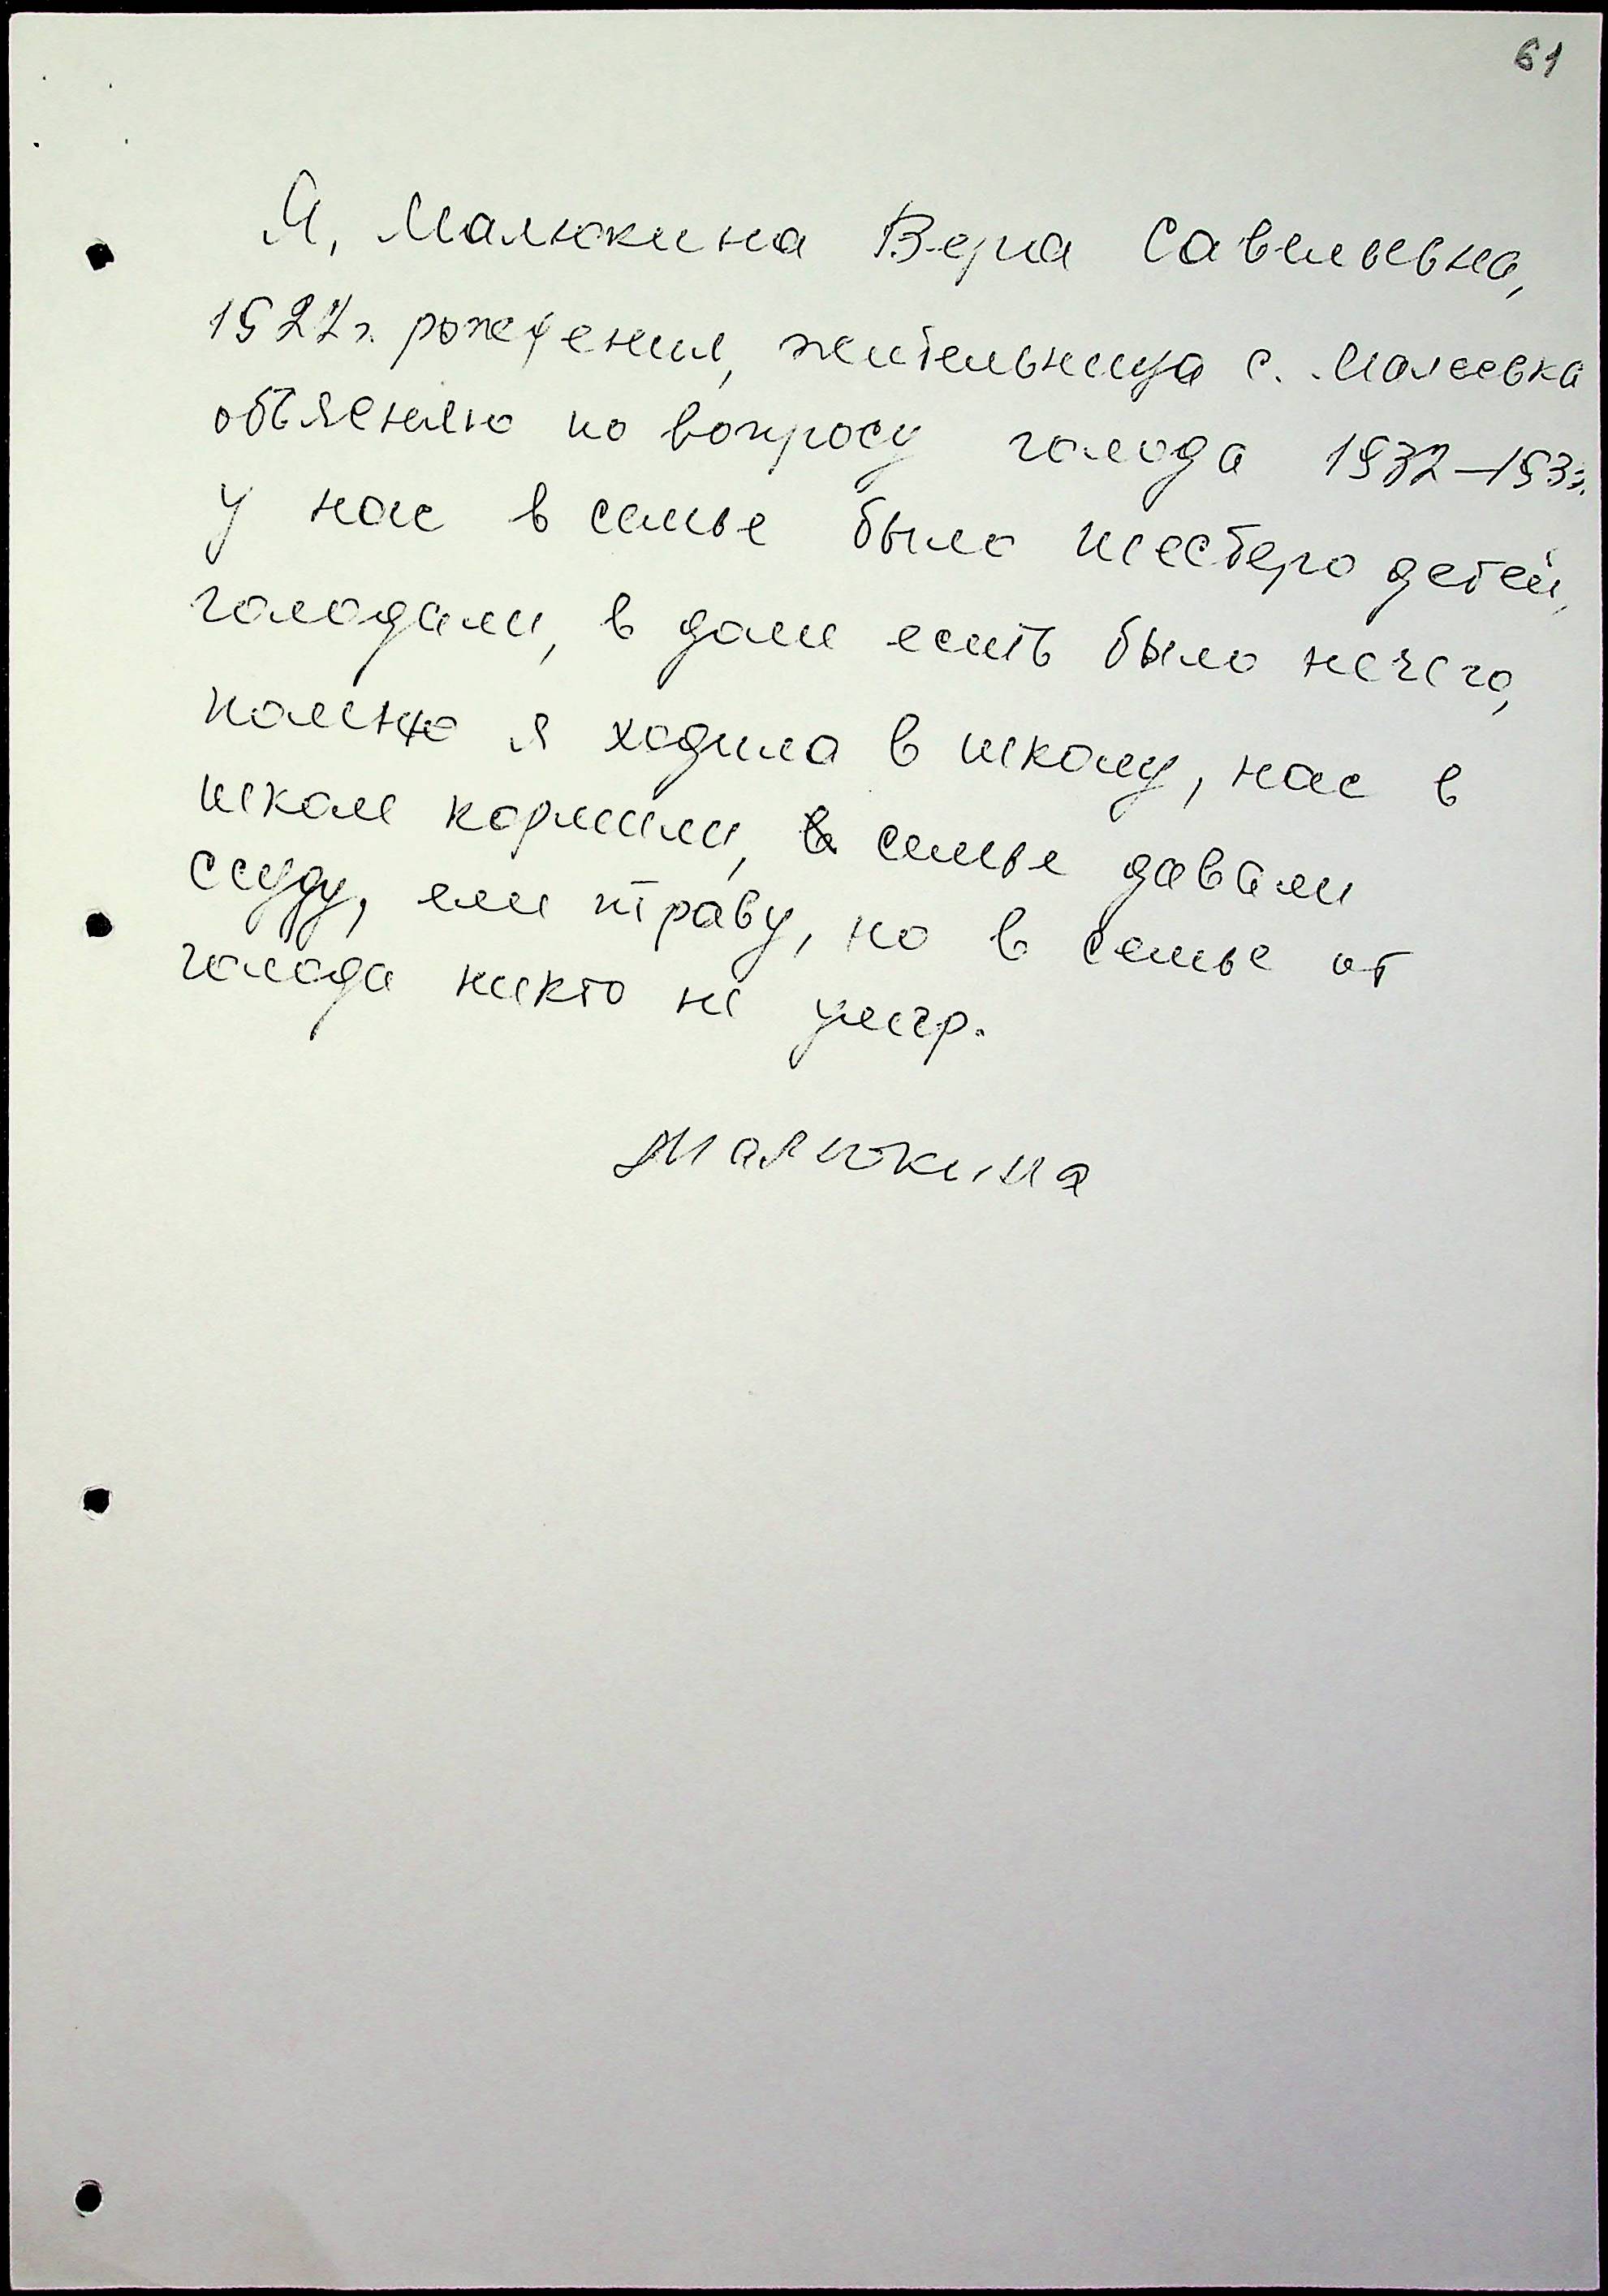 61
Я, Малюкина Вера Савельевна,
1927 г. рождения, жительница с. Малеевка
объясняю по вопросу голода 1932–1933г.
У нас в семье было шестеро детей,
голодали, в доме есть было нечего,
помню я ходила в школу, нас в
школе кормили, семье давали
ссуду, ели траву, но в семье от
голода никто не умер.
Малюкина